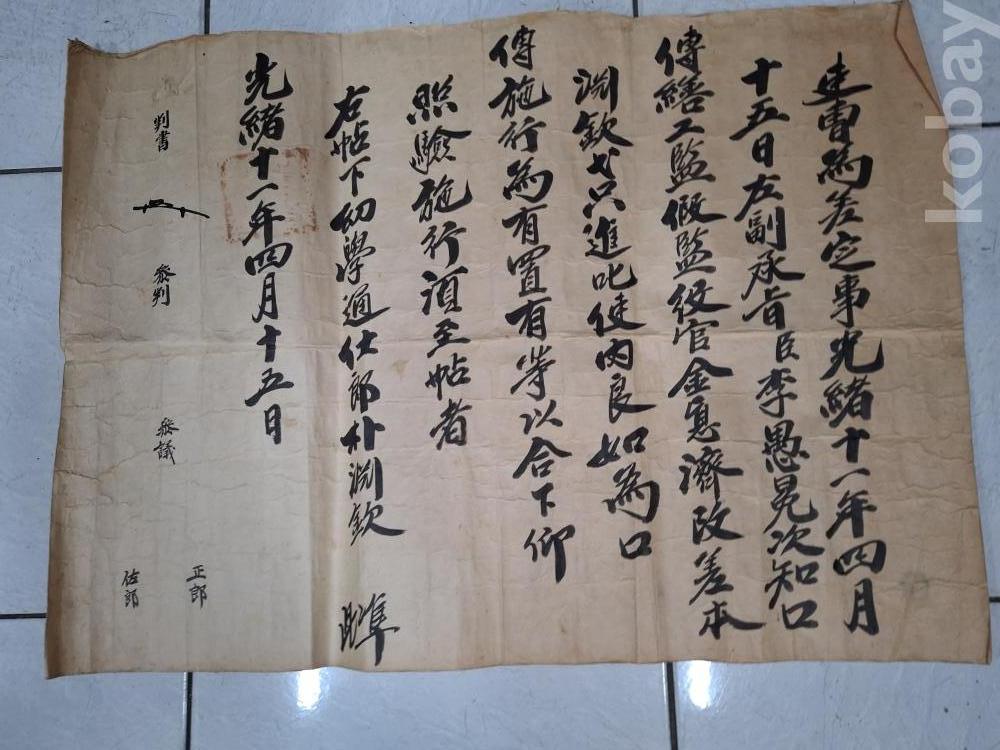 吏曹為差定事光緒十一年四月
十五日左副承旨臣李愚冕次知口
傳繕工監假監役官金濟改差本
渊欽進叱使內良如為口
傳施行為有置有等以合下仰
照驗施行須至帖者
右帖下幼學通仕郎朴渊欽
光緒十一年四月十五日
判書
參判
參議
正郎
佐郎
kobay